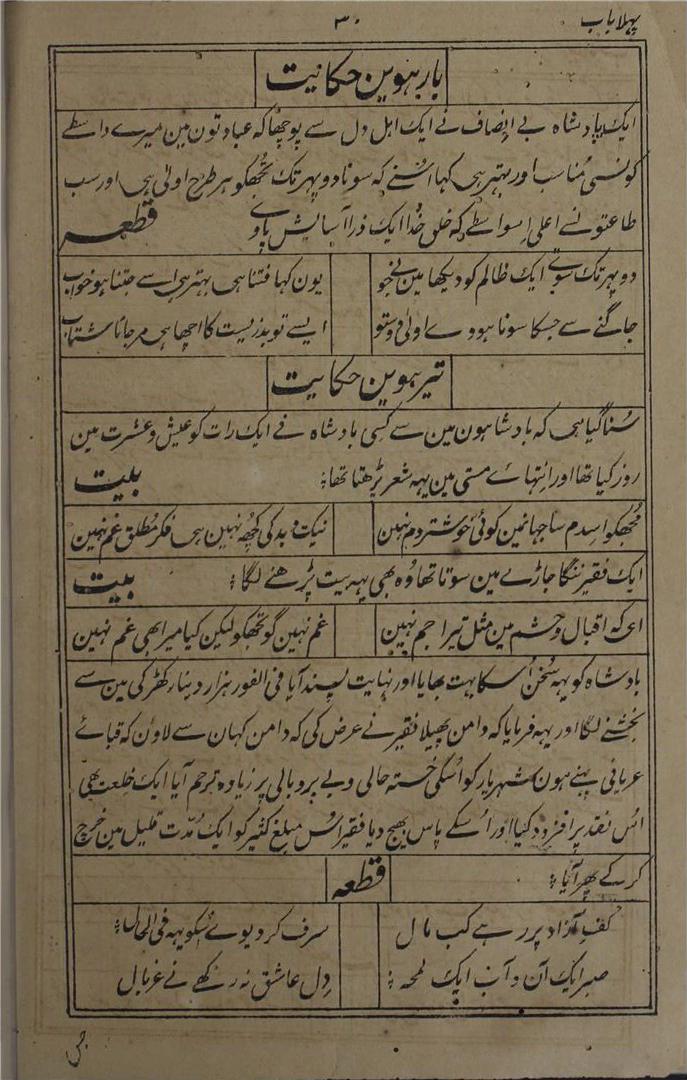 پہلا باب
۳۰
بارہوین حکایت
ایک پادشاہ بے انصاف نے ایک اہل دل سے پوچھا کہ عبادتون مین میرے واسطے
کونسی مُناسب اور بہتر ہی کہا اُسنے کہ سونا دوپہر تک تُجھکو ہر طرح اولٰی ہی اور سب
طاعتونسے اعلٰی اِسواسطے کہ خلقِ خُدا ایک ذرا آسایش پاوے قطعہ
دوپہر تک سوتے ایک ظالم کو دیکھا مین نے جو
یون کہا فتنا ہی بہتر ہی اسے جتنا ہو خواب
جاگنے سے جسکا سونا ہووے اولٰی دوستو
ایسے تو بد زیست کا اچھا ہی مر جانا شتاب
تیرہوین حکایت
سُنا گیا ہی کہ بادشاہون مین سے کسی بادشاہ نے ایک رات کو عیش و عشرت مین
روز کیا تھا اور انتہاے مستی مین یہہ شعر پڑھتا تھا؛ بیت
مُجھکو اِسدم سا جہانمین کوئی خوشتر دم نہین
نیک و بد کی کُچھ نہین ہی فکر مُطلق غم نہین
ایک فقیر ننگا جاڑے مین سوتا تھا وُہ بھی یہہ بیت پڑھنے لگا؛ بیت
ای کہ اقبال و حشم مین مثل تیرا جم نہین
غم نہین گو تُجھکو لیکن کیا میرا بھی غم نہین
بادشاہ کو یہہ سُخن اُسکا بہت بھایا اور نہایت پسند آیا فی الفور ہزار دینار کھڑکی مین سے
بخشنے لگا اور یہہ فرمایا کہ دامن پھیلا فقیر نے عرض کی کہ دامن کہان سے لاؤن کہ قباے
عریانی پہنے ہون شہریار کو اُسکی خستہ حالی و بے پر و بالی پر زیادہ ترحم آیا ایک خلعت بھی
اُس نقد پر افزود کیا اور اُسکے پاس بھیج دیا فقیر اُس مبلغ کثیر کو ایک مُدّت قلیل مین خرچ
کر کے پھر آیا؛
قطعہ
کفِ آزاد پر رہے کب مال
سرف کر دیوے سُکو یہہ فی الحال؛
صبر ایک آن و آب ایک لمحہ؛
دِل عاشق نہ رکھے نے غربال